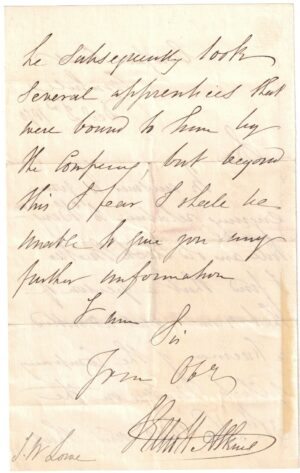 he subsequently took
several apprentices that
were bound to him by
the Company, but beyond
this I fear I shall be
unable to give you any
further information
I am
Sir
Your Obt
Atkins
J. W. Lowe